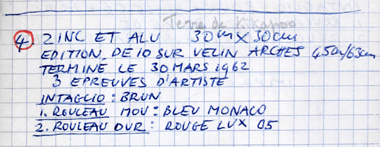 Terre de Kikapoo
4 ZINC ET ALU 30cm X 30cm
EDITION DE 10 SUR VELIN ARCHES 45cm/63cm
TERMINE LE 30 MARS 1962
3 EPREUVES D'ARTISTE
INTAGLIO : BRUN
1. ROULEAU MOU : BLEU MONACO
2. ROULEAU DUR : ROUGE LUX 05